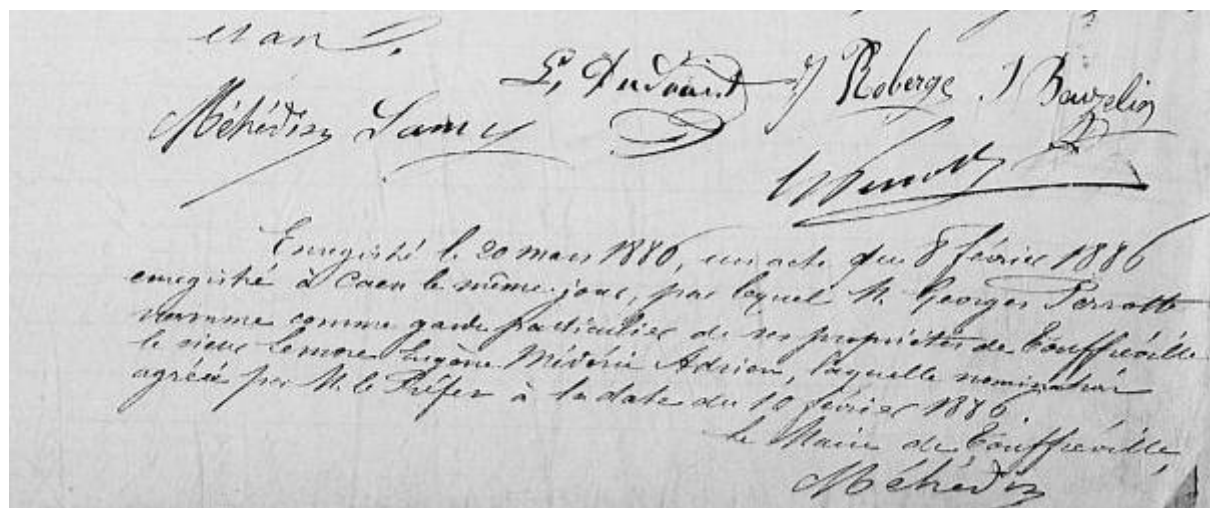 et an
Méhédin Lamy L. Dudouit J Roberge J Bauzelin
Enregistré le 20 mars 1886, un acte du 8 février 1886
enregistré à Caen le même jour, par lequel M. Georges Perrotte
nomme comme garde particulier de ses propriétés de Touffréville
le sieur Lemore Eugène Médéric Adrien, laquelle nomination
agréée par M. le Préfet à la date du 10 février 1886.
Le Maire de Touffréville,
Méhédin